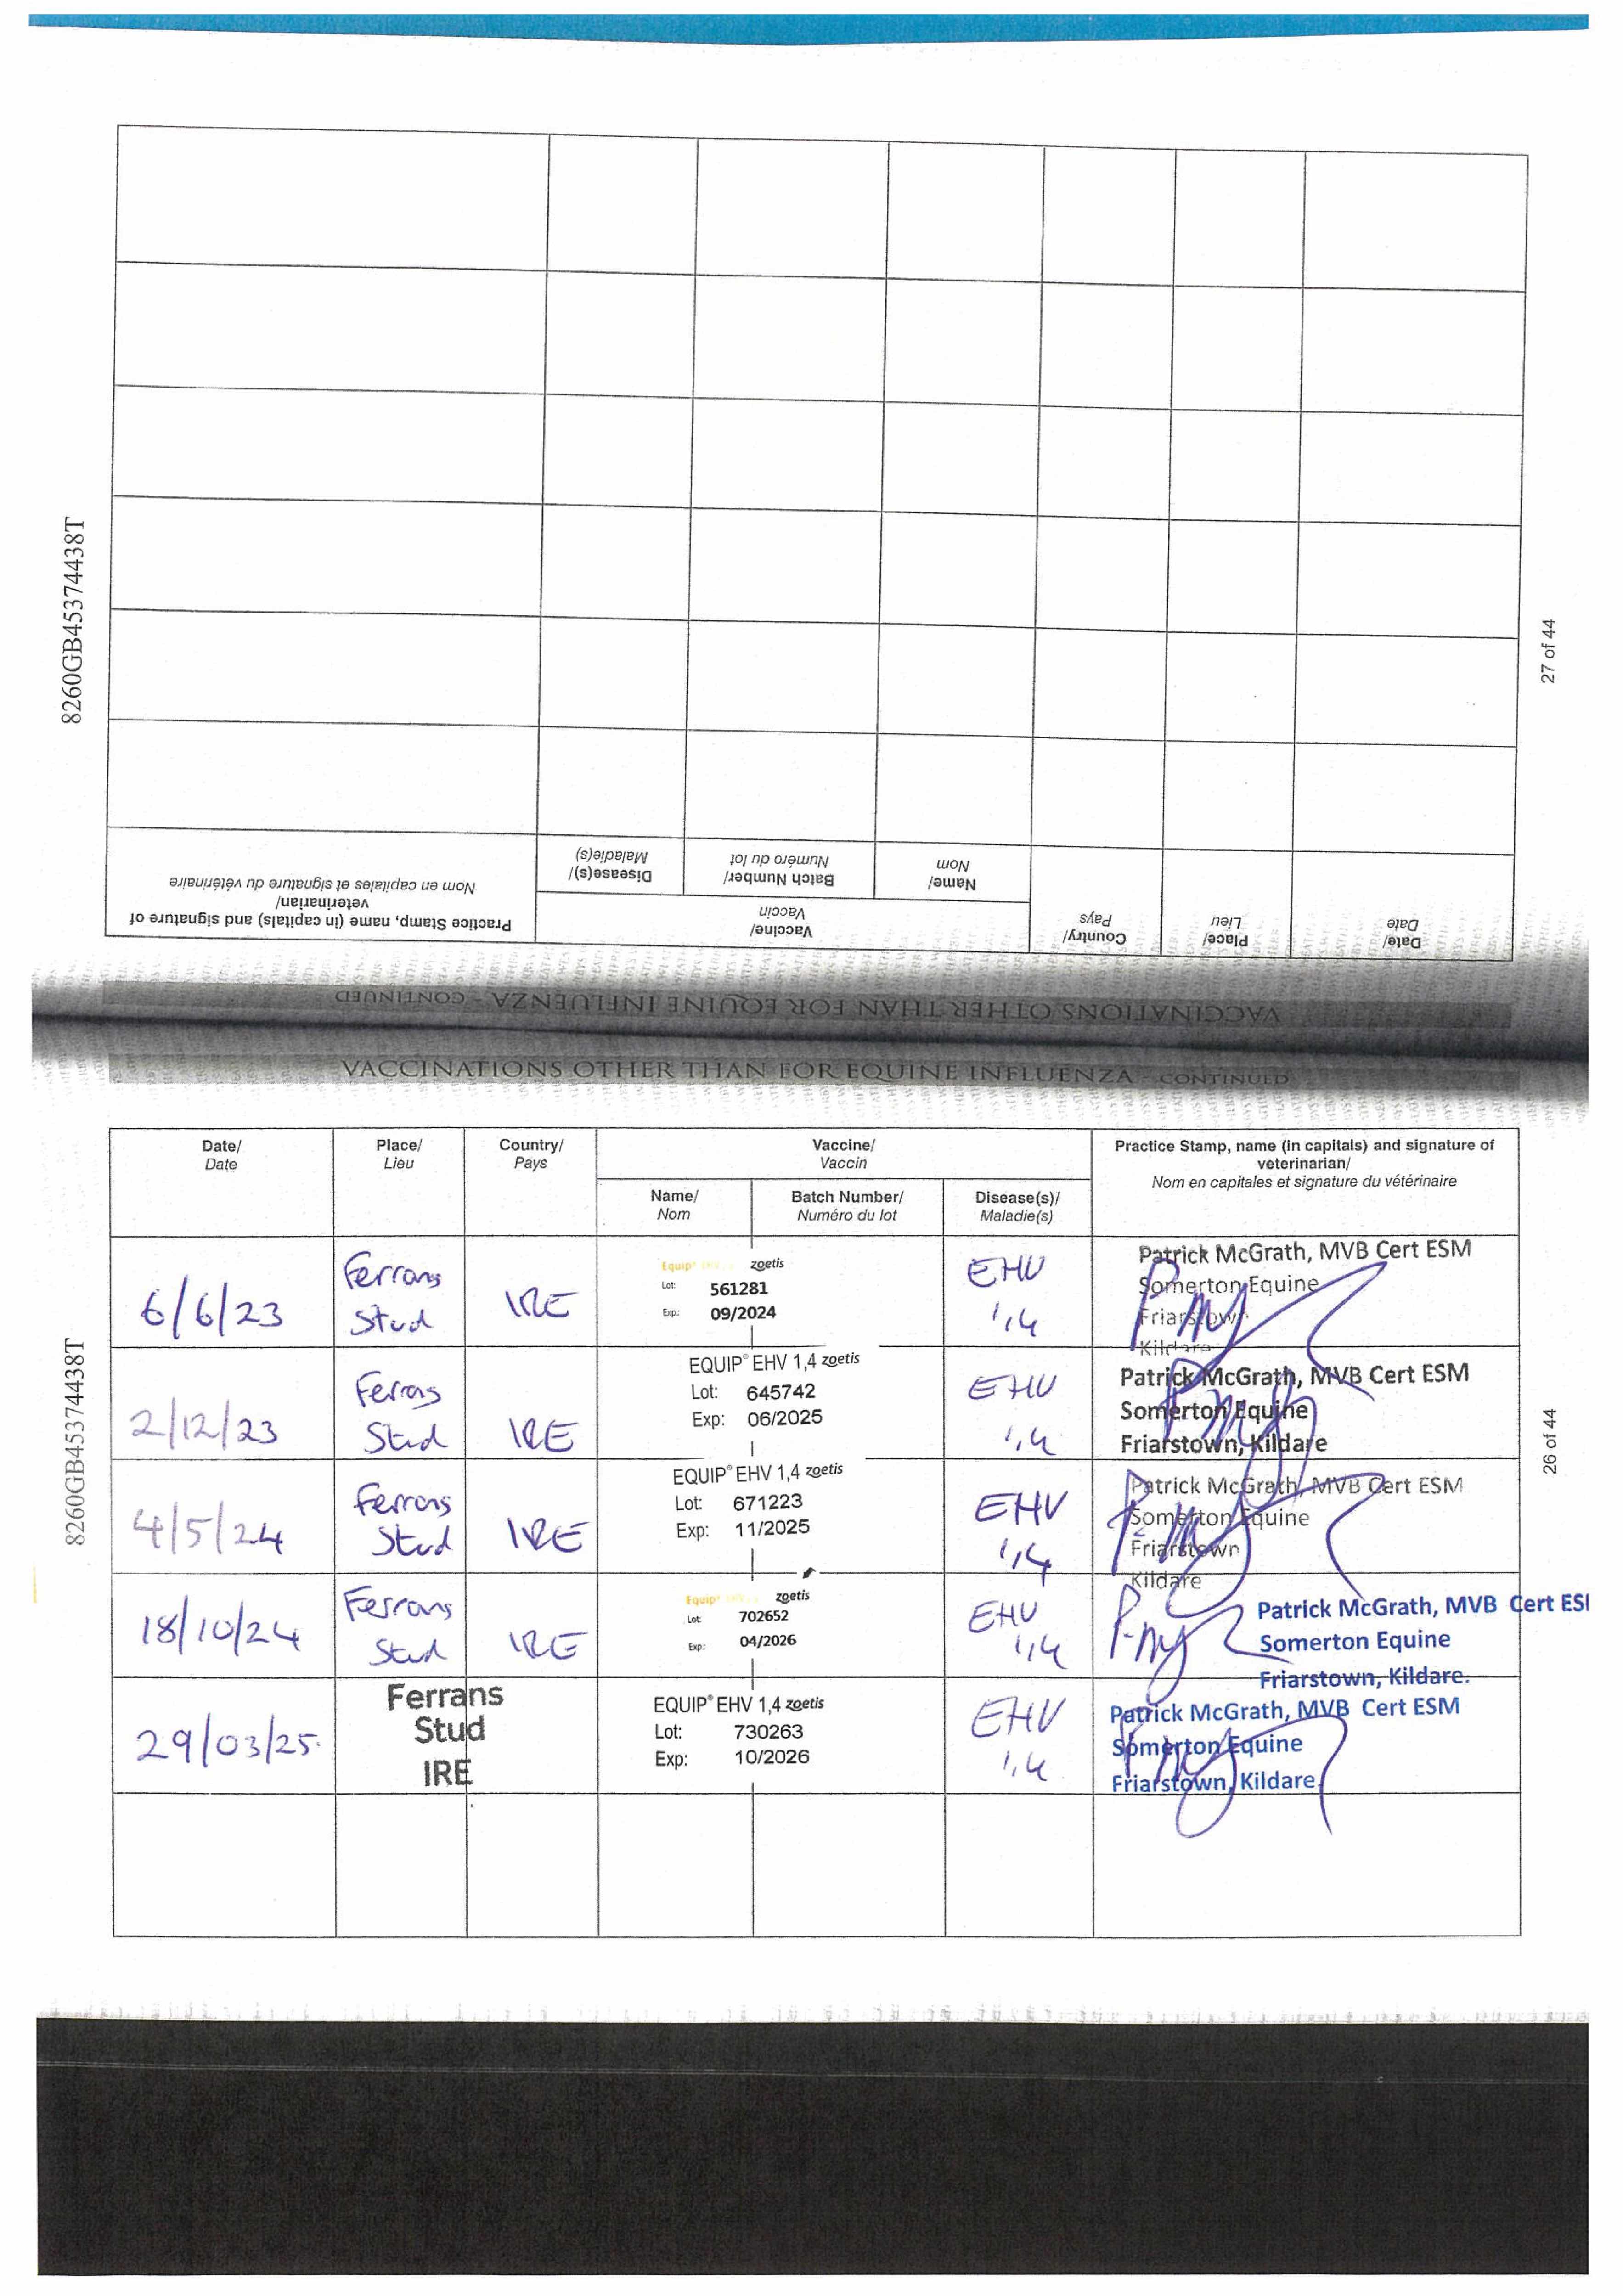 8260GB45374438T
27 of 44
Practice Stamp, name (in capitals) and signature of
veterinarian/
Nom en capitales et signature du vétérinaire
Disease(s)/
Maladie(s)
Batch Number/
Numéro du lot
Name/
Nom
Vaccine/
Vaccin
Country/
Pays
Place/
Lieu
Date/
Date
VACCINATIONS OTHER THAN FOR EQUINE INFLUENZA - CONTINUED
VACCINATIONS OTHER THAN FOR EQUINE INFLUENZA - CONTINUED
Date/
Date
Place/
Lieu
Country/
Pays
Vaccine/
Vaccin
Name/
Nom
Batch Number/
Numéro du lot
Disease(s)/
Maladie(s)
Practice Stamp, name (in capitals) and signature of
veterinarian/
Nom en capitales et signature du vétérinaire
6/6/23
Ferrans
Stud
IRE
Equip zoetis
Lot: 561281
Exp: 09/2024
EHV
1,4
Patrick McGrath, MVB Cert ESM
Somerton Equine
Friarstown
Kildare
2/12/23
Ferrans
Stud
IRE
EQUIP® EHV 1,4 zoetis
Lot: 645742
Exp: 06/2025
EHV
1,4
Patrick McGrath, MVB Cert ESM
Somerton Equine
Friarstown, Kildare
4/5/24
Ferrans
Stud
IRE
EQUIP® EHV 1,4 zoetis
Lot: 671223
Exp: 11/2025
EHV
1,4
Patrick McGrath, MVB Cert ESM
Somerton Equine
Friarstown
Kildare
18/10/24
Ferrans
Stud
IRE
Equip zoetis
Lot: 702652
Exp: 04/2026
EHV
1,4
Patrick McGrath, MVB Cert ES
Somerton Equine
Friarstown, Kildare.
29/03/25.
Ferrans
Stud
IRE
EQUIP® EHV 1,4 zoetis
Lot: 730263
Exp: 10/2026
EHV
1,4
Patrick McGrath, MVB Cert ESM
Somerton Equine
Friarstown, Kildare.
8260GB45374438T
26 of 44